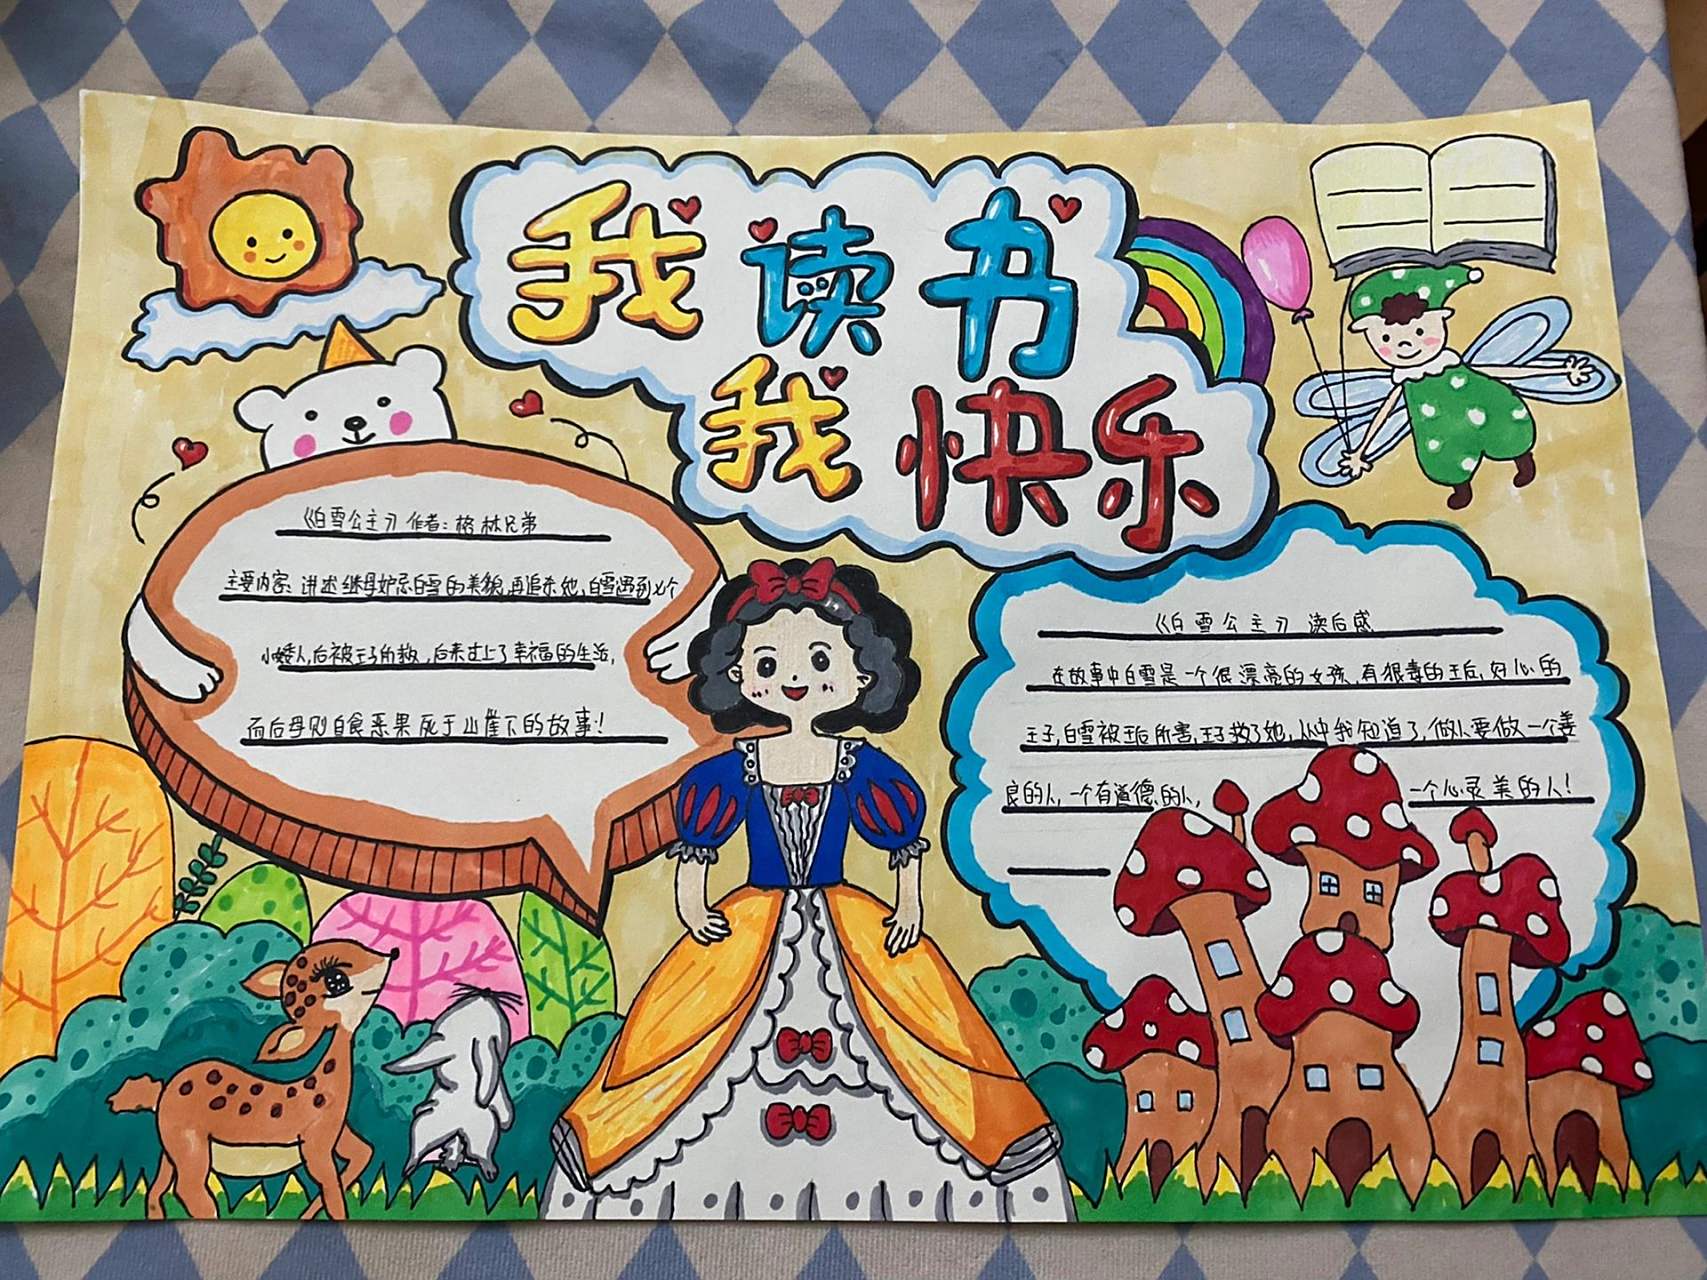 我读书
我快乐
《白雪公主》作者:格林兄弟
主要内容:讲述继母妒忌白雪的美貌,再追杀他,白雪遇到七个
小矮人,后被王子所救,后来过上了幸福的生活,
而后母则自食恶果死于山崖下的故事!
《白雪公主》读后感
在故事中白雪是一个很漂亮的女孩,有狠毒的王后,好心的
王子,白雪被王后所害,王子救了她,从中我知道了,做人要做一个善
良的人,一个有道德的人, 一个心灵美的人!